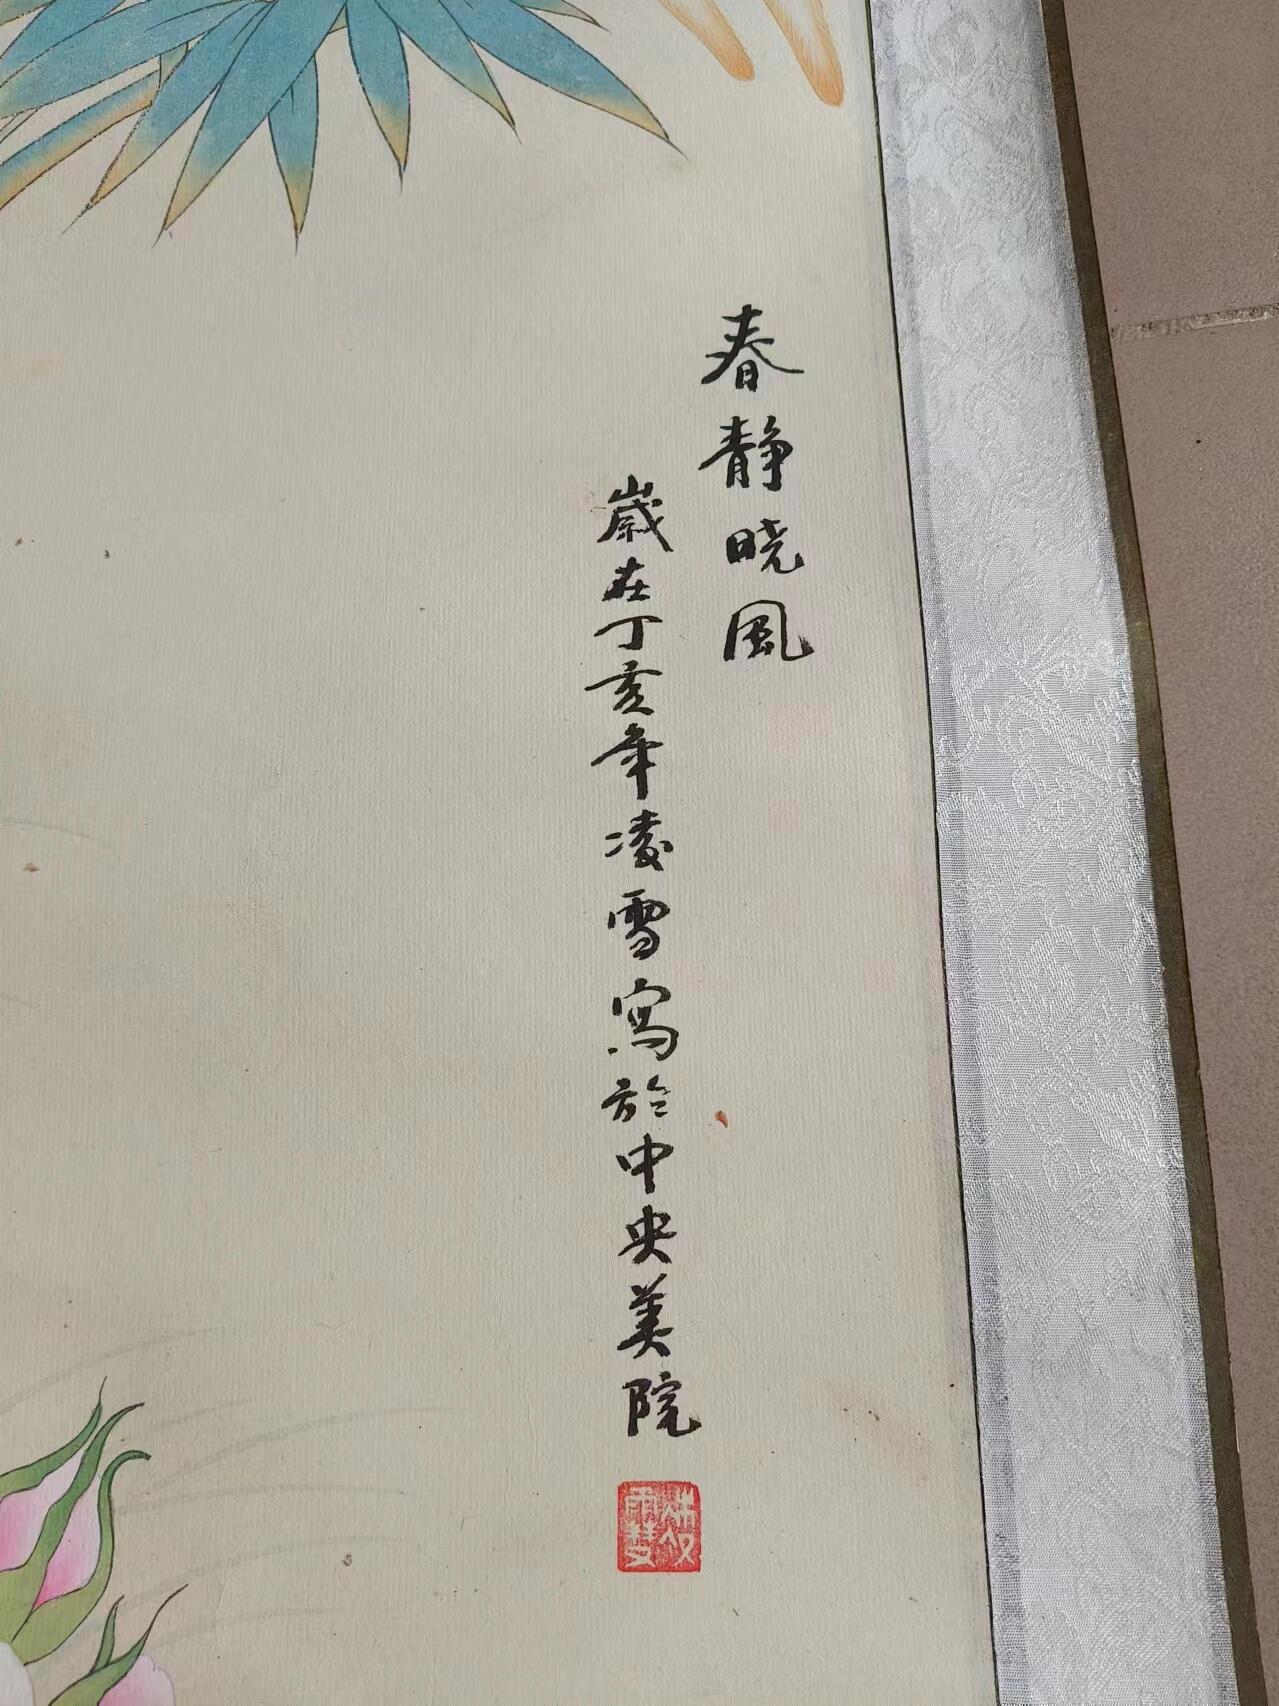 春静晓風
歳在丁亥年凌雪寫於中央美院